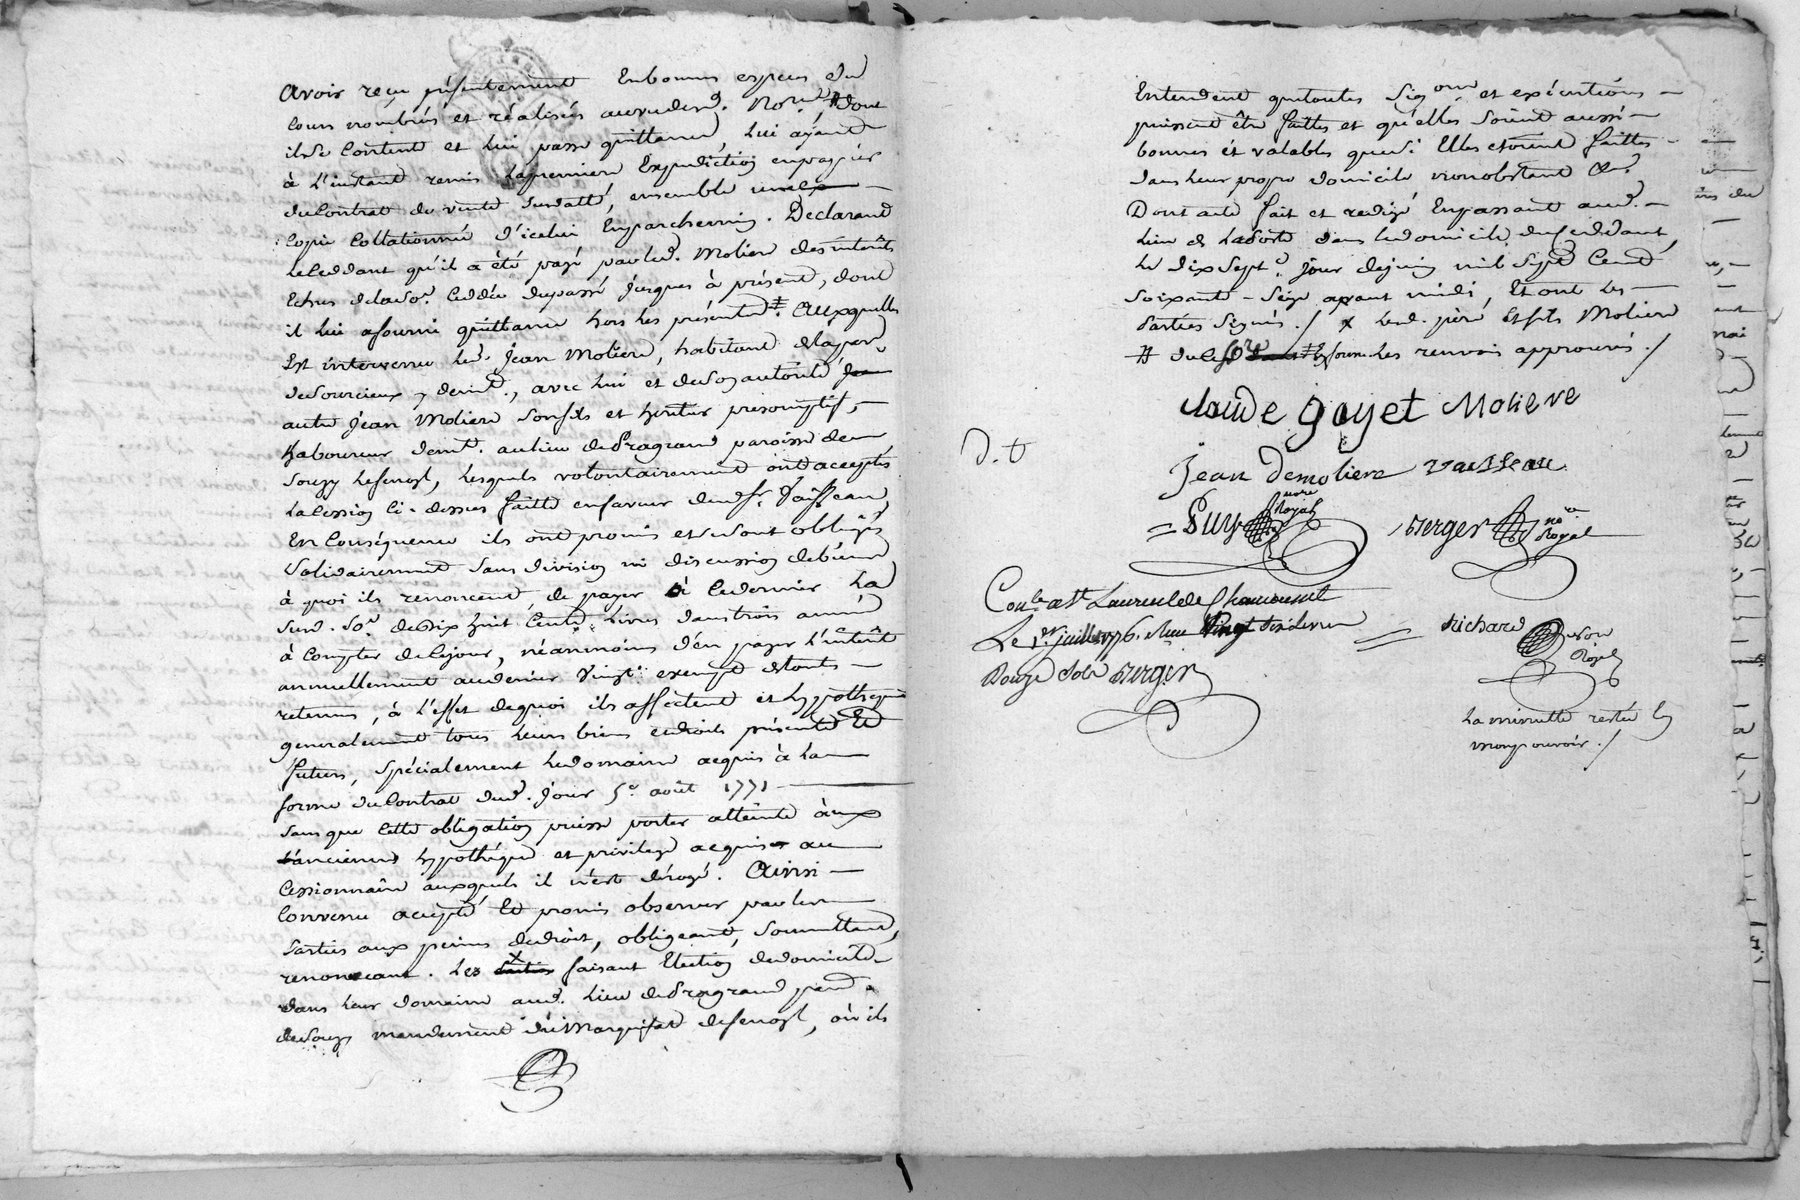 avoir reçu présentement en bonnes especes du
cours nombrés et réalisés au vû desd. No.res # dont
il se contente et lui passe quittance, lui ayant
à l'instant remis la premiere Expedition en papier
du Contrat de vente susdatté, ensemble
copie Collationnée d'icelui En parchemin. Declarant
le Ceddant qu'il a été payé par led. Moliere des interêts
Echus de la so.e Ceddée du passé jusques à présent, dont
il lui a fourni quittance hors les présentes ‡. Auxquelles
Est intervenu led. Jean Moliere, habitant de la par.
de Sourcieux y demt., avec lui et de son autorité
autre Jean Moliere son fils et heritier présomptif,
Laboureur demt. au lieu de Pragrand paroisse de
Souzy Lesquels volontairement ont acceptés
la Cession ci-dessus faitte en faveur dud. sr. Vaisseau,
En Conséquence ils ont promis et se sont obligés
Solidairement sans division ni discussion de biens
à quoi ils renoncent de payer à ce dernier La
susd. So.e de Dix huit Cents Livres dans trois années
à Compter de ce jour, néanmoins d'en payer l'intérêt
annuellement au denier Vingt exempt de touts
retenues, à l'effet de quoi ils affectent et hypothequent
generalement tous leurs biens et droits présents Et
futurs, spécialement le domaine acquis à la
forme du Contrat dud. jour 5e août 1771
sans que cette obligation puisse porter atteinte aux
anciennes hypothéques et privilege acquis au
Cessionnaire auxquels il n'est dérogé. Ainsi
Convenu accepté Et promis observer par les
Parties aux peines de droit, obligeant, soumettant,
renonceant. Les x faisant Election de domicile
dans leur domaine aud. lieu de Pragrand par.
de Souzy mandement du Marquisat , où ils
Entendent que toutes sig.ons et exécutions
puissent être faittes et qu'elles soient aussi
bonnes et valables que si Elles etoient faittes
dans leur propre domicile nonobstant &a.
Dont acte fait et redigé En passant aud.
lieu de dans le domicile du Ceddant,
Le dix Sept.e jour de juin mil Sept Cent
soixante-Seize avant midi, Et ont les
Parties Signés./ x Lesd. père et fils Moliere
# ‡ Les renvois approuvés./
Claude goyet Moliere
Jean demoliere vaisseau
Puy nore Royal
Berger nore Royal
D.t
Con.lé a St Laurent de Chamousset
Le 1er juillet 1776. Reçu Vingt six livres
Douze sols Berger
Richard nore Royal
La minutte restée En
mon pouvoir./